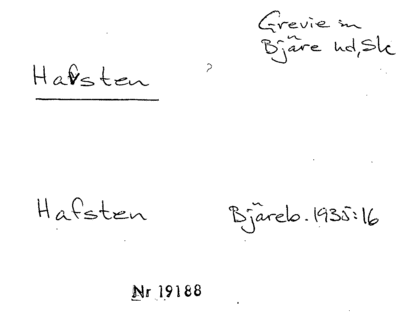 Grevie sn
Bjäre hd, Sk
Havsten
?
Hafsten
Bjäreb. 1935:16
Nr 19188